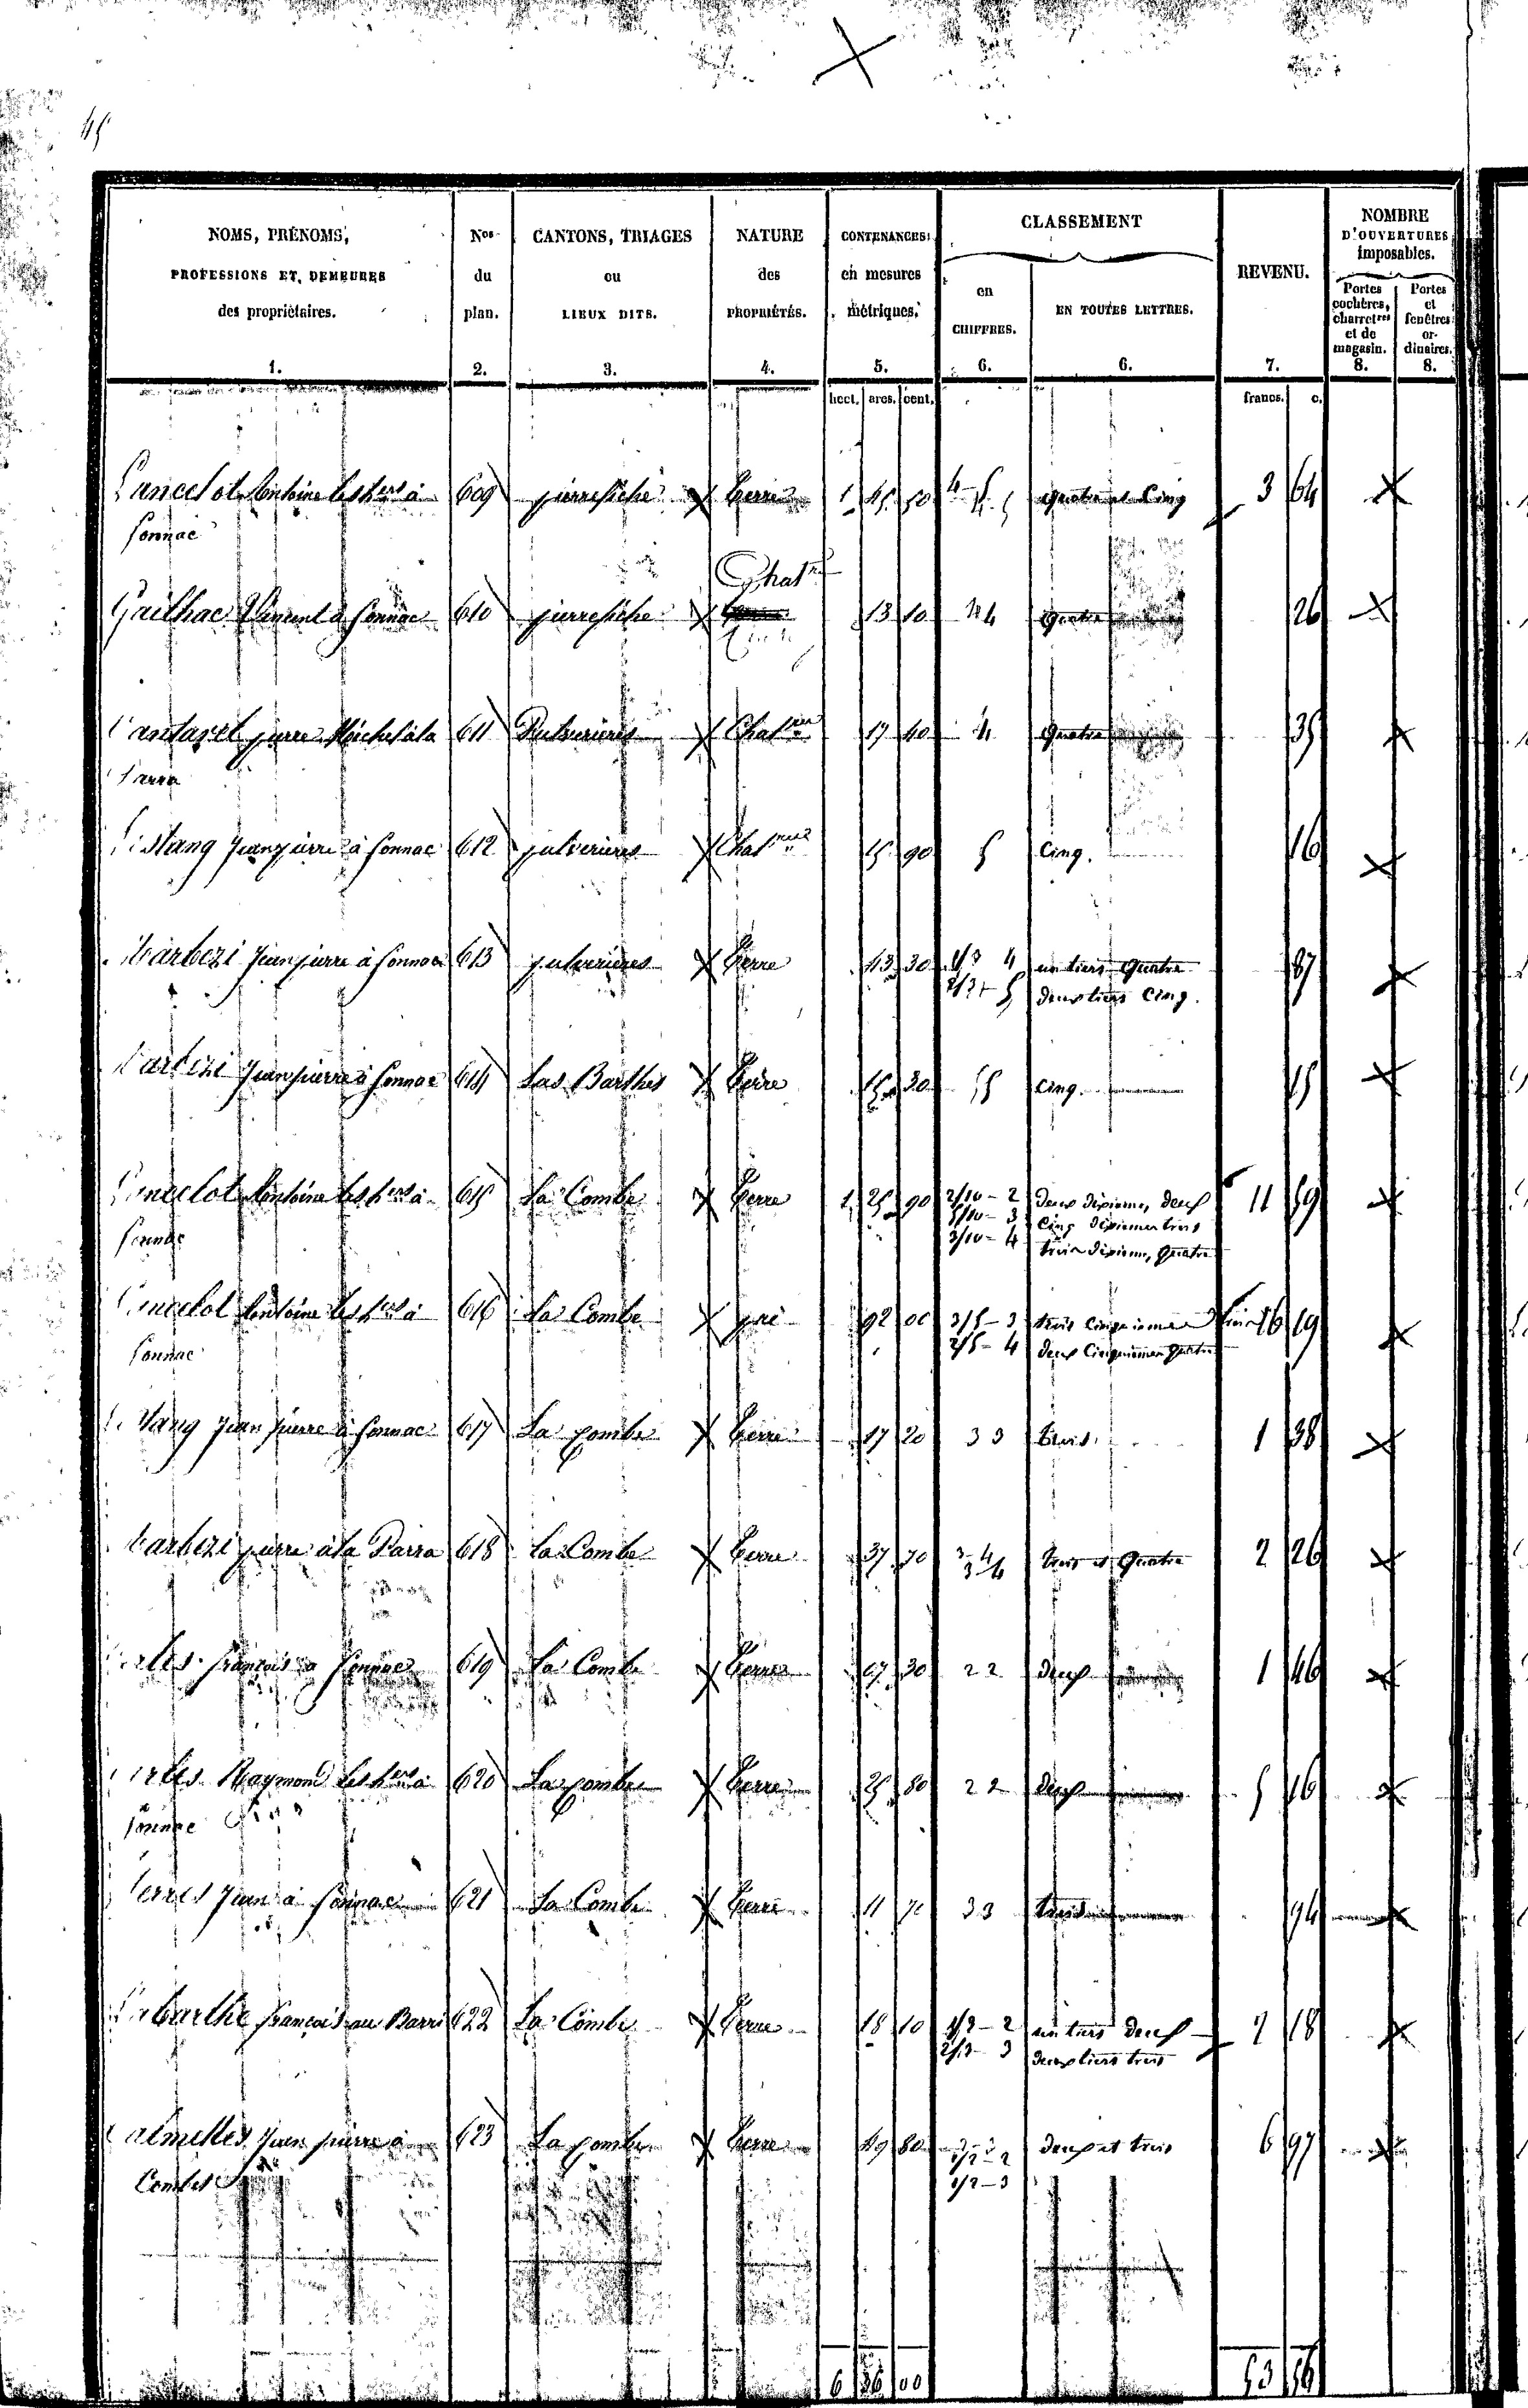 45
NOMS, PRÉNOMS, PROFESSIONS ET DEMEURES des propriétaires. 1.
Nos du plan. 2.
CANTONS, TRIAGES ou LIEUX DITS. 3.
NATURE des PROPRIÉTÉS. 4.
CONTENANCES en mesures métriques. 5.
CLASSEMENT
en CHIFFRES. 6.
EN TOUTES LETTRES. 6.
REVENU. 7.
NOMBRE D'OUVERTURES imposables.
Portes cochères, charretres et de magasin. 8.
Portes et fenêtres or- dinaires. 8.
hect. ares. cent. francs. c.
Lancelot Antoine les hers à 609 pierrefiche Terre 1 45 50 4-5 quatre et Cinq 3 64
Sonnac
Chatne
Gailhac Vincent à Sonnac 610 pierrefiche 13 10 4 quatre 26
pierre Michel à la 611 Pulverieres Chatne 17 40 4 Quatre 35
Parra
Estang Jean pierre à Sonnac 612 pulverieres Chatne 15 90 5 Cinq. 16
Barbezi Jean pierre à Sonnac 613 pulverieres Terre 43 30 1/3 4 un tiers quatre 87
2/3 5 deux tiers Cinq.
Barbezi Jean pierre à Sonnac 614 Las Barthes Terre 15 30 5 Cinq. 15
Lancelot Antoine les hers à 615 La Combe Terre 1 25 90 2/10 - 2 deux dixiemes, deux 11 59
Sonnac 5/10 - 3 Cinq dixiemes trois
3/10 - 4 trois dixiemes, quatre
Lancelot Antoine les hers à 616 La Combe pré 92 00 3/5 - 3 trois Cinquiemes trois 16 19
Sonnac 2/5 - 4 deux Cinquiemes quatre
Estang Jean pierre à Sonnac 617 La Combe Terre 17 20 3 3 trois 1 38
Barbezi pierre à la Parra 618 La Combe Terre 37 70 3-4 trois et Quatre 2 26
françois à Sonnac 619 La Combe Terre 07 30 2 2 deux 1 46
Raymond les hers à 620 La Combe Terre 25 80 2 2 deux 5 16
Sonnac
Jean à Sonnac 621 La Combe Terre 11 70 3 3 trois 94
Labarthe françois au Barri 622 La Combe Terre 18 10 1/3 - 2 un tiers deux 2 18
2/3 - 3 deux tiers trois
Calmettes Jean pierre à 623 La Combe Terre 49 80 1/2 - 2 deux et trois 6 97
Combes 1/2 - 3
6 36 00 53 56